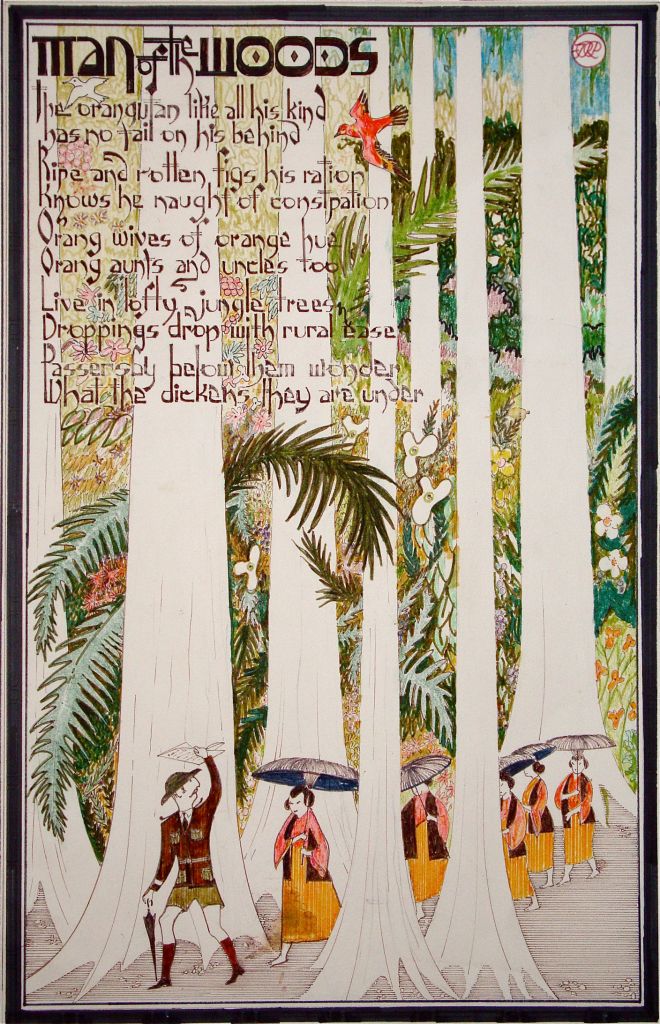 MAN of the WOODS
The orangutan like all his kind
has no tail on his behind
Ripe and rotten figs his ration
Knows he naught of constpation
Orang wives of orange hue
Orang aunts and uncles too
Live in lofty jungle trees
Droppings drop with rural ease
Passersby below them wonder
What the dickens they are under